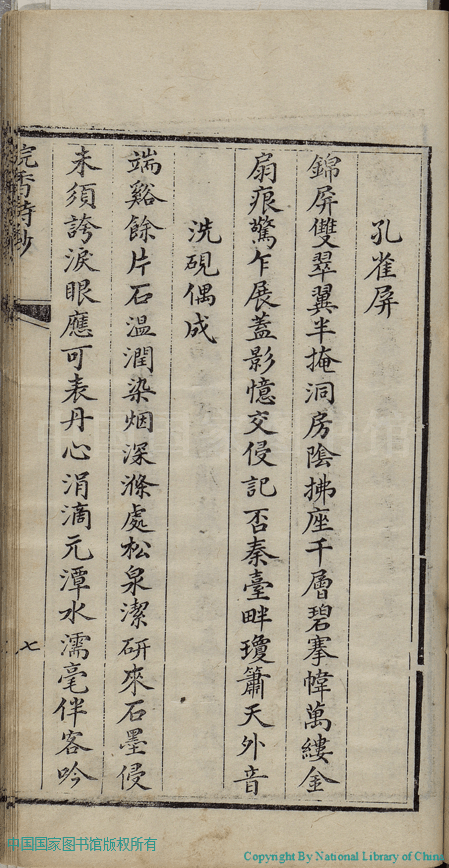 孔雀屏
錦屏雙翠翼半掩洞房陰拂座千層碧搴幃萬縷金
扇痕驚乍展蓋影憶交侵記否秦臺畔瓊簫天外音
洗硯偶成
端谿餘片石溫潤染烟深滌處松泉潔研來石墨侵
未須誇淚眼應可表丹心涓滴元潭水濡毫伴客吟
浣香詩鈔
七
中国国家图书馆
中国国家图书馆版权所有
Copyright By National Library of China